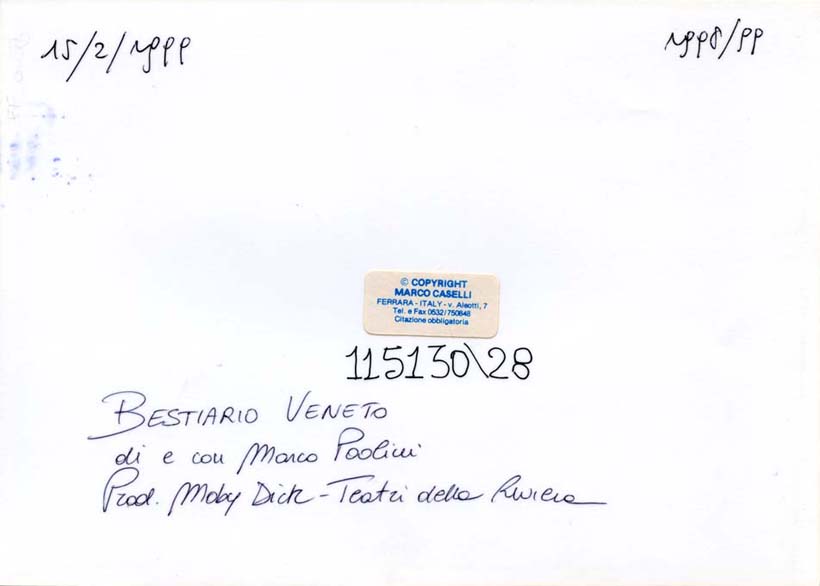 15/2/1999
1998/99
© COPYRIGHT
MARCO CASELLI
FERRARA - ITALY - v. Aleotti, 7
Tel. e Fax 0532/750848
Citazione obbligatoria
115130\28
BESTIARIO VENETO
di e con Marco Paolini
Prod. Moby Dick - Teatri della Riviera